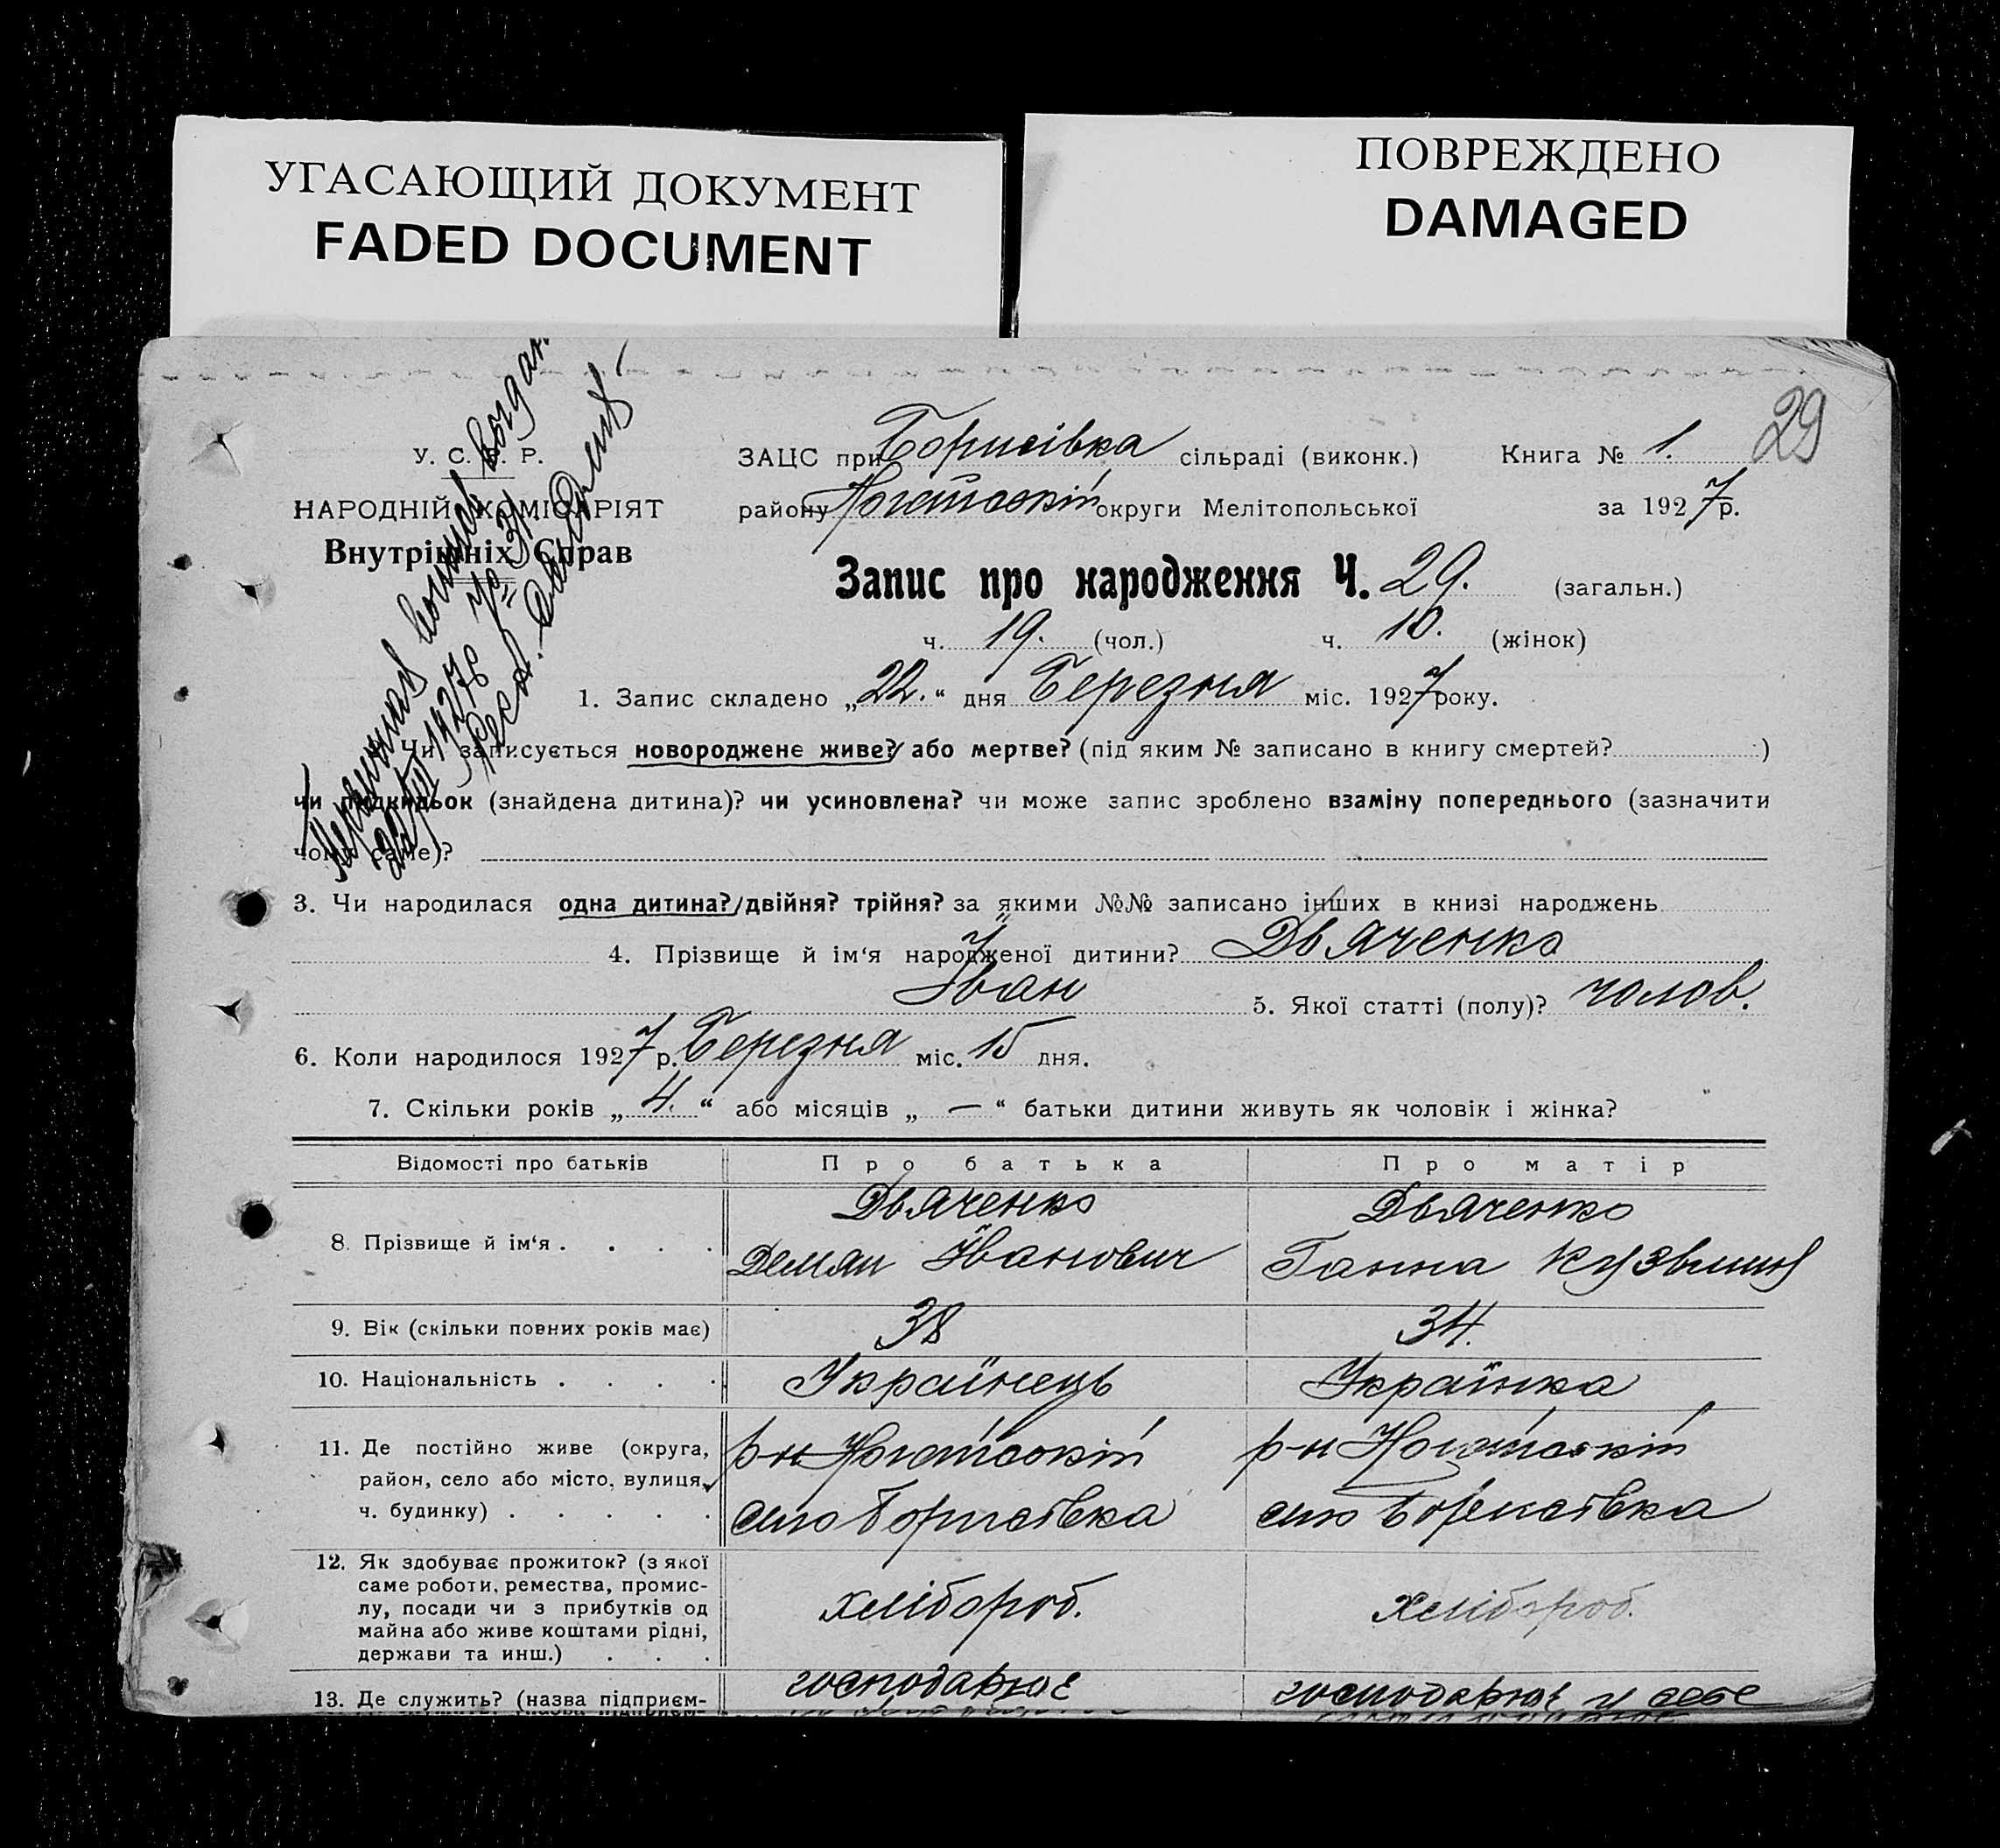 УГАСАЮЩИЙ ДОКУМЕНТ
FADED DOCUMENT
ПОВРЕЖДЕНО
DAMAGED
29
У. С. Р. Р.
НАРОДНІЙ КОМІСАРІЯТ
Внутрішніх Справ
ЗАЦС при Борисівка сільраді (виконк.) Книга № 1.
району Ногайській округи Мелітопольської за 1927 р.
Запис про народження Ч. 29. (загальн.)
ч. 19. (чол.) ч. 10. (жінок)
1. Запис складено „22.“ дня Березня міс. 1927 року.
Чи записується новороджене живе? або мертве? (під яким № записано в книгу смертей? )
чи підкидьок (знайдена дитина)? чи усиновлена? чи може запис зроблено взаміну попереднього (зазначити
чому саме)?
3. Чи народилася одна дитина?/двійня? трійня? за якими №№ записано інших в книзі народжень
4. Прізвище й ім‘я народженої дитини? Дьяченко
Іван 5. Якої статті (полу)? чолов.
6. Коли народилося 1927 р. Березня міс. 15 дня.
7. Скільки років „4.“ або місяців „—“ батьки дитини живуть як чоловік і жінка?
Відомості про батьків Про батька Про матір
8. Прізвище й ім‘я . . . . Дьяченко Демян Іванович Дьяченко Ганна
9. Вік (скільки повних років має) 38 34.
10. Національність . . . . Українець Українка
11. Де постійно живе (округа, р-н Ногайській р-н Ногайській
район, село або місто, вулиця,
ч. будинку) . . . . . село Борисівка село Борисівка
12. Як здобуває прожиток? (з якої
саме роботи, ремества, промис-
лу, посади чи з прибутків од хлібороб. хлібороб.
майна або живе коштами рідні,
держави та инш.) . . .
13. Де служить? (назва підприєм- господарює господарює у себе